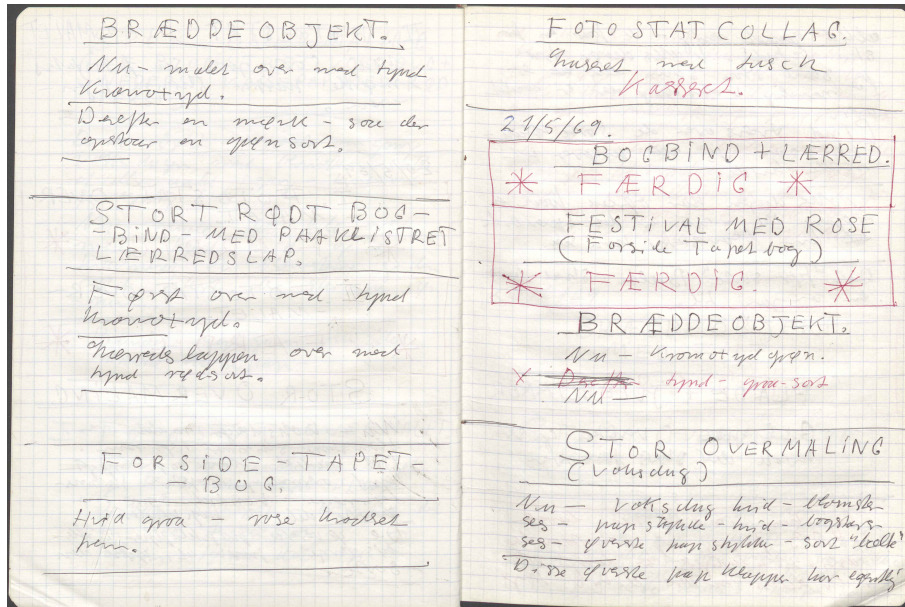 BRÆDDEOBJEKT.
Nu - malet over med tynd
Kromotyd.
Derefter en mørk - som der
opstaar en grøn sort.
STORT RØDT BOG-
-BIND - MED PAAKLISTRET
LÆRREDSLAP.
Først over med tynd
Kromotyd.
Lærredslappen over med
tynd rød-sort.
FORSIDE - TAPET-
- BOG.
Hvid graa - rose
FOTOSTATCOLLAG.
med tusch
Kasseret.
21/5/69.
BOGBIND + LÆRRED.
* FÆRDIG *
FESTIVAL MED ROSE
(Forside Tapetbog)
* FÆRDIG. *
BRÆDDEOBJEKT.
Nu - Kromotyd grøn.
X tynd - graa-sort
Nu -
STOR OVERMALING
(Voksdug)
Nu - Voksdug hvid - blomster
ses - pap stykke - hvid - bogstaver
ses - øverste pap stykke - sort "bælte"
Disse øverste pap klapper har egentlig